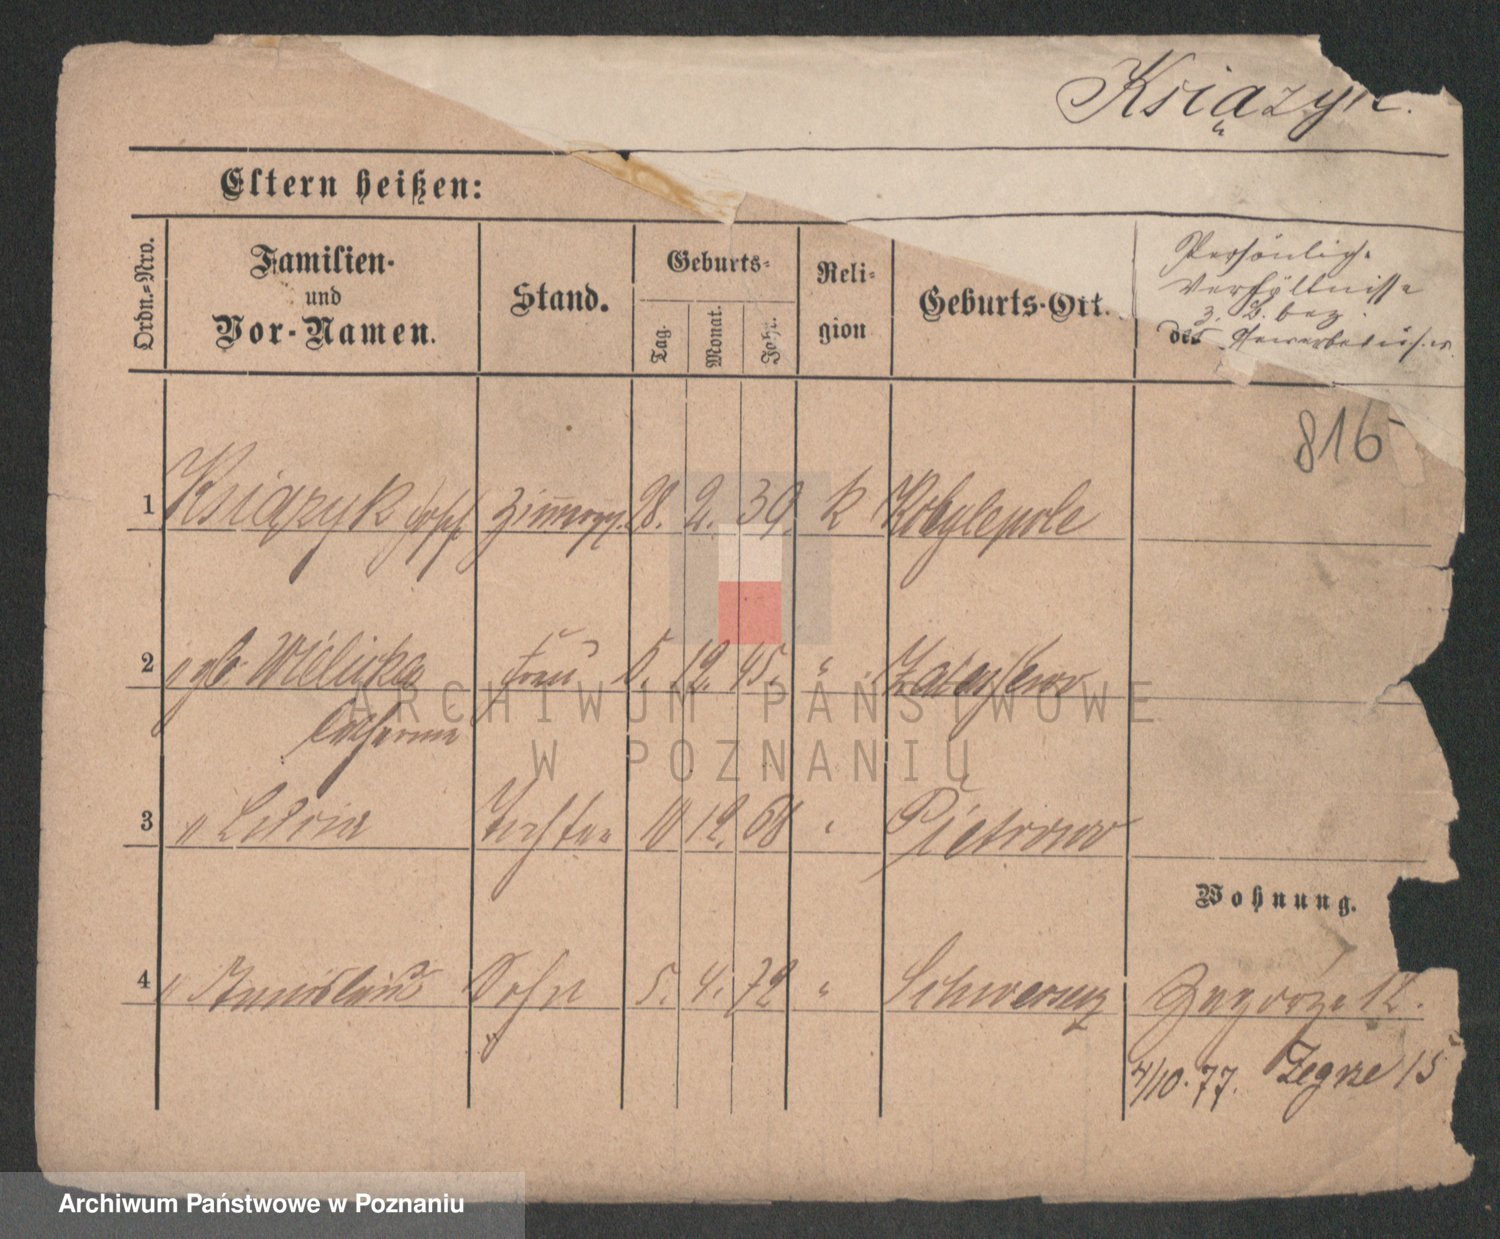 Książyk.
Eltern heißen:
Ordn.-Nro.
Familien-
und
Vor-Namen.
Stand.
Geburts-
Tag.
Monat.
Jahr.
Reli-
gion
Geburts-Ort.
Persönliche
Verhältnisse
z. B. bez.
des Gewerbes u.s.w.
816
1 Książyk Josef Zimmerges. 28. 2. 39. k Kobylepole
2 " gb. Wielicka Frau 5. 12. 45. "
Catharina
3 " Tochter 10 12. 68 " Pietrowo
Wohnung.
4 " Stanislaus Sohn 5. 4. 72 " Schwersenz Zagorze 12.
4/10. 77. Zegrze 15
ARCHIWUM PAŃSTWOWE
W POZNANIU
Archiwum Państwowe w Poznaniu